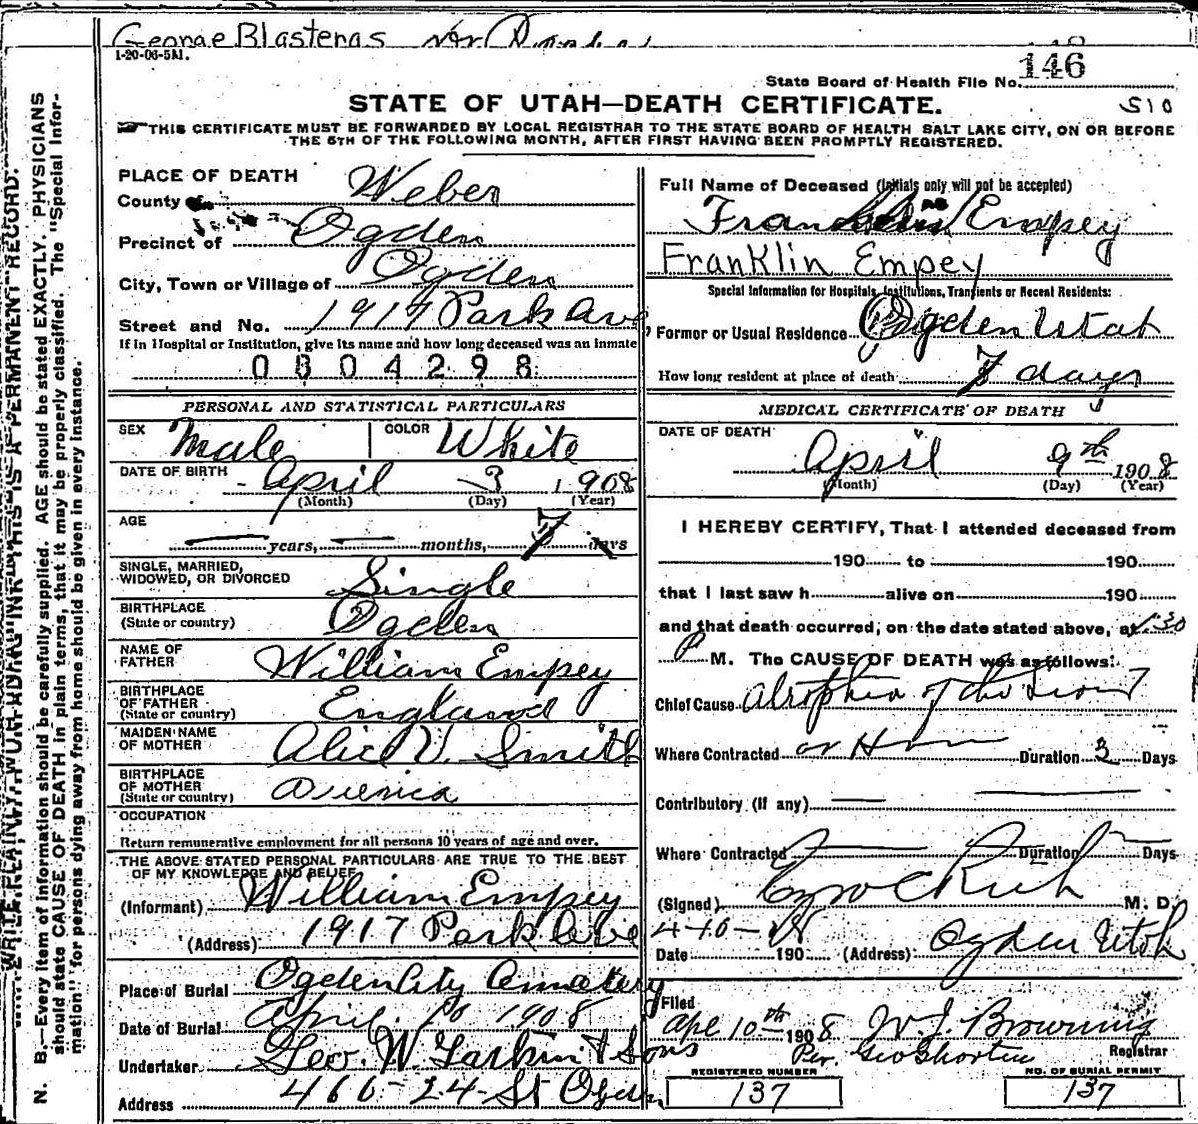 George Blasteras
1-20-06-5M.
146
State Board of Health File No.
STATE OF UTAH—DEATH CERTIFICATE.
S10
THIS CERTIFICATE MUST BE FORWARDED BY LOCAL REGISTRAR TO THE STATE BOARD OF HEALTH SALT LAKE CITY, ON OR BEFORE
THE 5TH OF THE FOLLOWING MONTH, AFTER FIRST HAVING BEEN PROMPTLY REGISTERED.
WRITE PLAINLY, WITH UNFADING INK—THIS IS A PERMANENT RECORD.
N. B.—Every item of information should be carefully supplied. AGE should be stated EXACTLY. PHYSICIANS
should state CAUSE OF DEATH in plain terms, that it may be properly classified. The "Special Infor-
mation" for persons dying away from home should be given in every instance.
PLACE OF DEATH
County of Weber
Precinct of Ogden
City, Town or Village of Ogden
Street and No. 1917 Park Ave
If in Hospital or Institution, give its name and how long deceased was an inmate
0804298
PERSONAL AND STATISTICAL PARTICULARS
SEX Male COLOR White
DATE OF BIRTH April 3 1908
(Month) (Day) (Year)
AGE
years, months, 7 days
SINGLE, MARRIED,
WIDOWED, OR DIVORCED Single
BIRTHPLACE
(State or country) Ogden
NAME OF
FATHER William Empey
BIRTHPLACE
OF FATHER
(State or country) England
MAIDEN NAME
OF MOTHER Alice V. Smith
BIRTHPLACE
OF MOTHER
(State or country) America
OCCUPATION
Return remunerative employment for all persons 10 years of age and over.
THE ABOVE STATED PERSONAL PARTICULARS ARE TRUE TO THE BEST
OF MY KNOWLEDGE AND BELIEF
(Informant) William Empey
(Address) 1917 Park Ave
Place of Burial Ogden City Cemetery
Date of Burial April 10 1908
Undertaker Geo. W. Larkin & Sons
Address 466-24-St Ogden
Full Name of Deceased (Initials only will not be accepted)
Empey
Franklin Empey
Special Information for Hospitals, Institutions, Transients or Recent Residents:
Former or Usual Residence Ogden Utah
How long resident at place of death 7 days
MEDICAL CERTIFICATE OF DEATH
DATE OF DEATH
April 9th 1908
(Month) (Day) (Year)
I HEREBY CERTIFY, That I attended deceased from
190 to 190
that I last saw h alive on 190
and that death occurred, on the date stated above, at 1:30
P M. The CAUSE OF DEATH was as follows:
Chief Cause Atrophia of the
Where Contracted at Home Duration 3 Days
Contributory (If any)
Where Contracted Duration Days
(Signed) Ezra C Rich M. D.
Date 4-10-08 190 (Address) Ogden Utah
Filed
Apl 10th 1908 W. J. Browning
Per. Geo Shorten Registrar
REGISTERED NUMBER
137
NO. OF BURIAL PERMIT
137